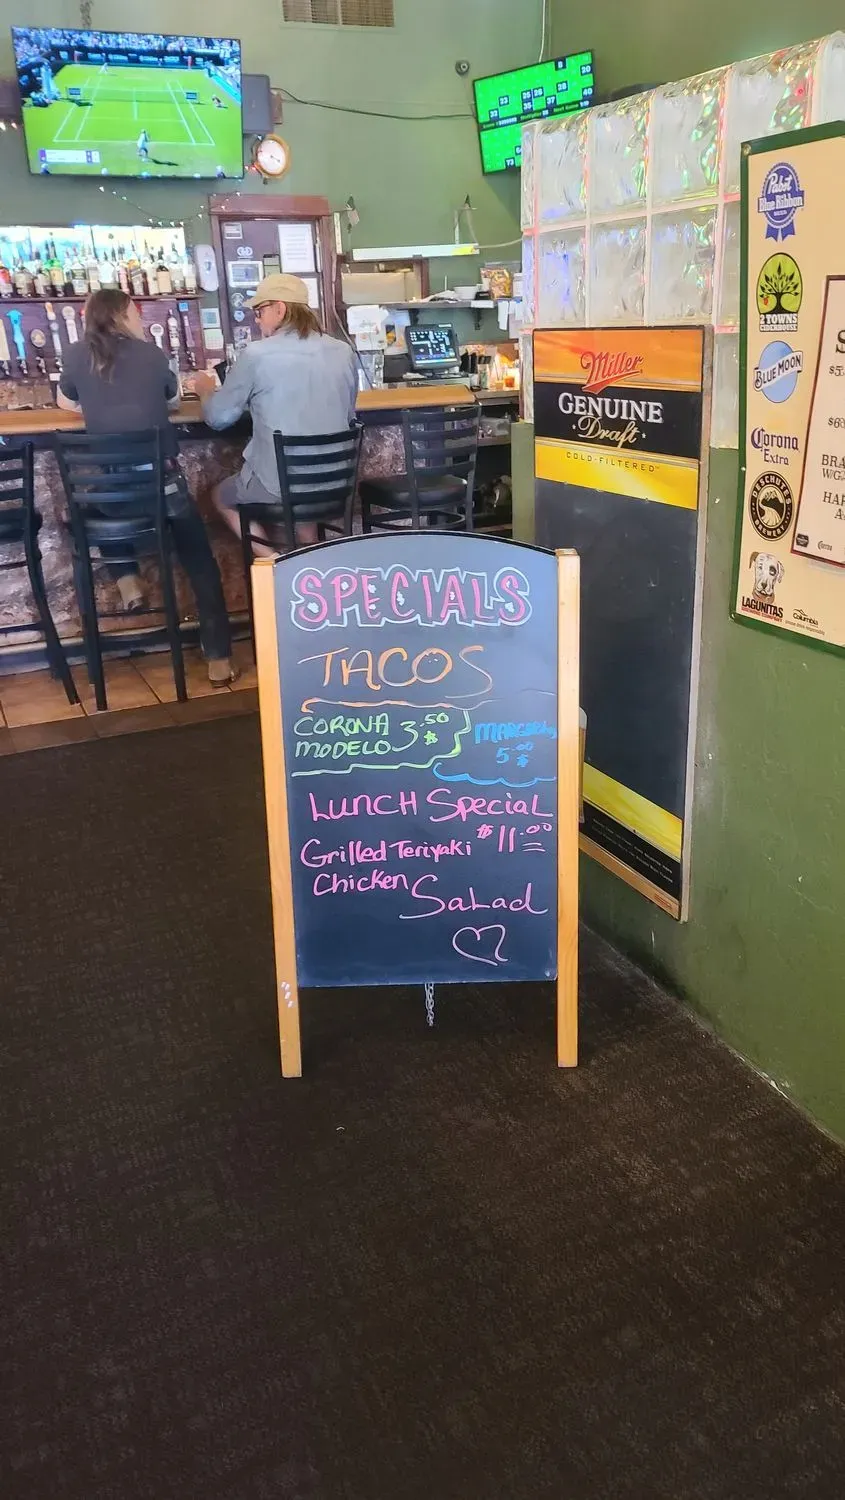 SPECIALS
TACOS
CORONA
MODELO 3.50 $
5.00 $
LUNCH SPECIAL
$11.00
Grilled Teriyaki
Chicken
SaLad
Miller
GENUINE
Draft
COLD-FILTERED
Pabst
Blue Ribbon
2 TOWNS
CIDERHOUSE
BLUE MOON
Corona
Extra
DESCHUTES
BREWERY
LAGUNITAS
Columbia
BRA
W/G
HAR
A